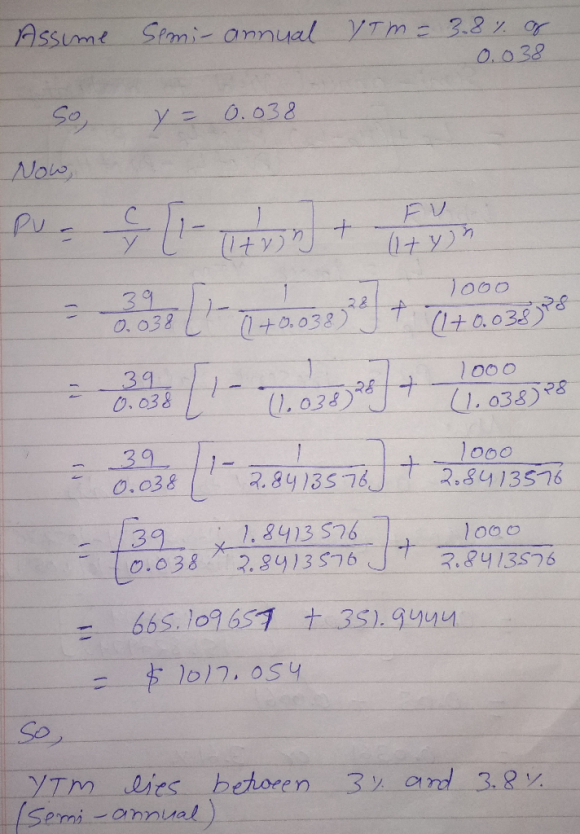 Assume Semi-annual YTM = 3.8 % or
0.038
So, y = 0.038
Now,
PV = C/Y [1 - 1/(1+Y)^n] + FV/(1+Y)^n
= 39/0.038 [1 - 1/(1+0.038)^28] + 1000/(1+0.038)^28
= 39/0.038 [1 - 1/(1.038)^28] + 1000/(1.038)^28
= 39/0.038 [1 - 1/2.8413576] + 1000/2.8413576
= [39/0.038 × 1.8413576/2.8413576] + 1000/2.8413576
= 665.109657 + 351.9444
= $ 1017.054
So,
YTM lies between 3 % and 3.8 %.
(Semi-annual)